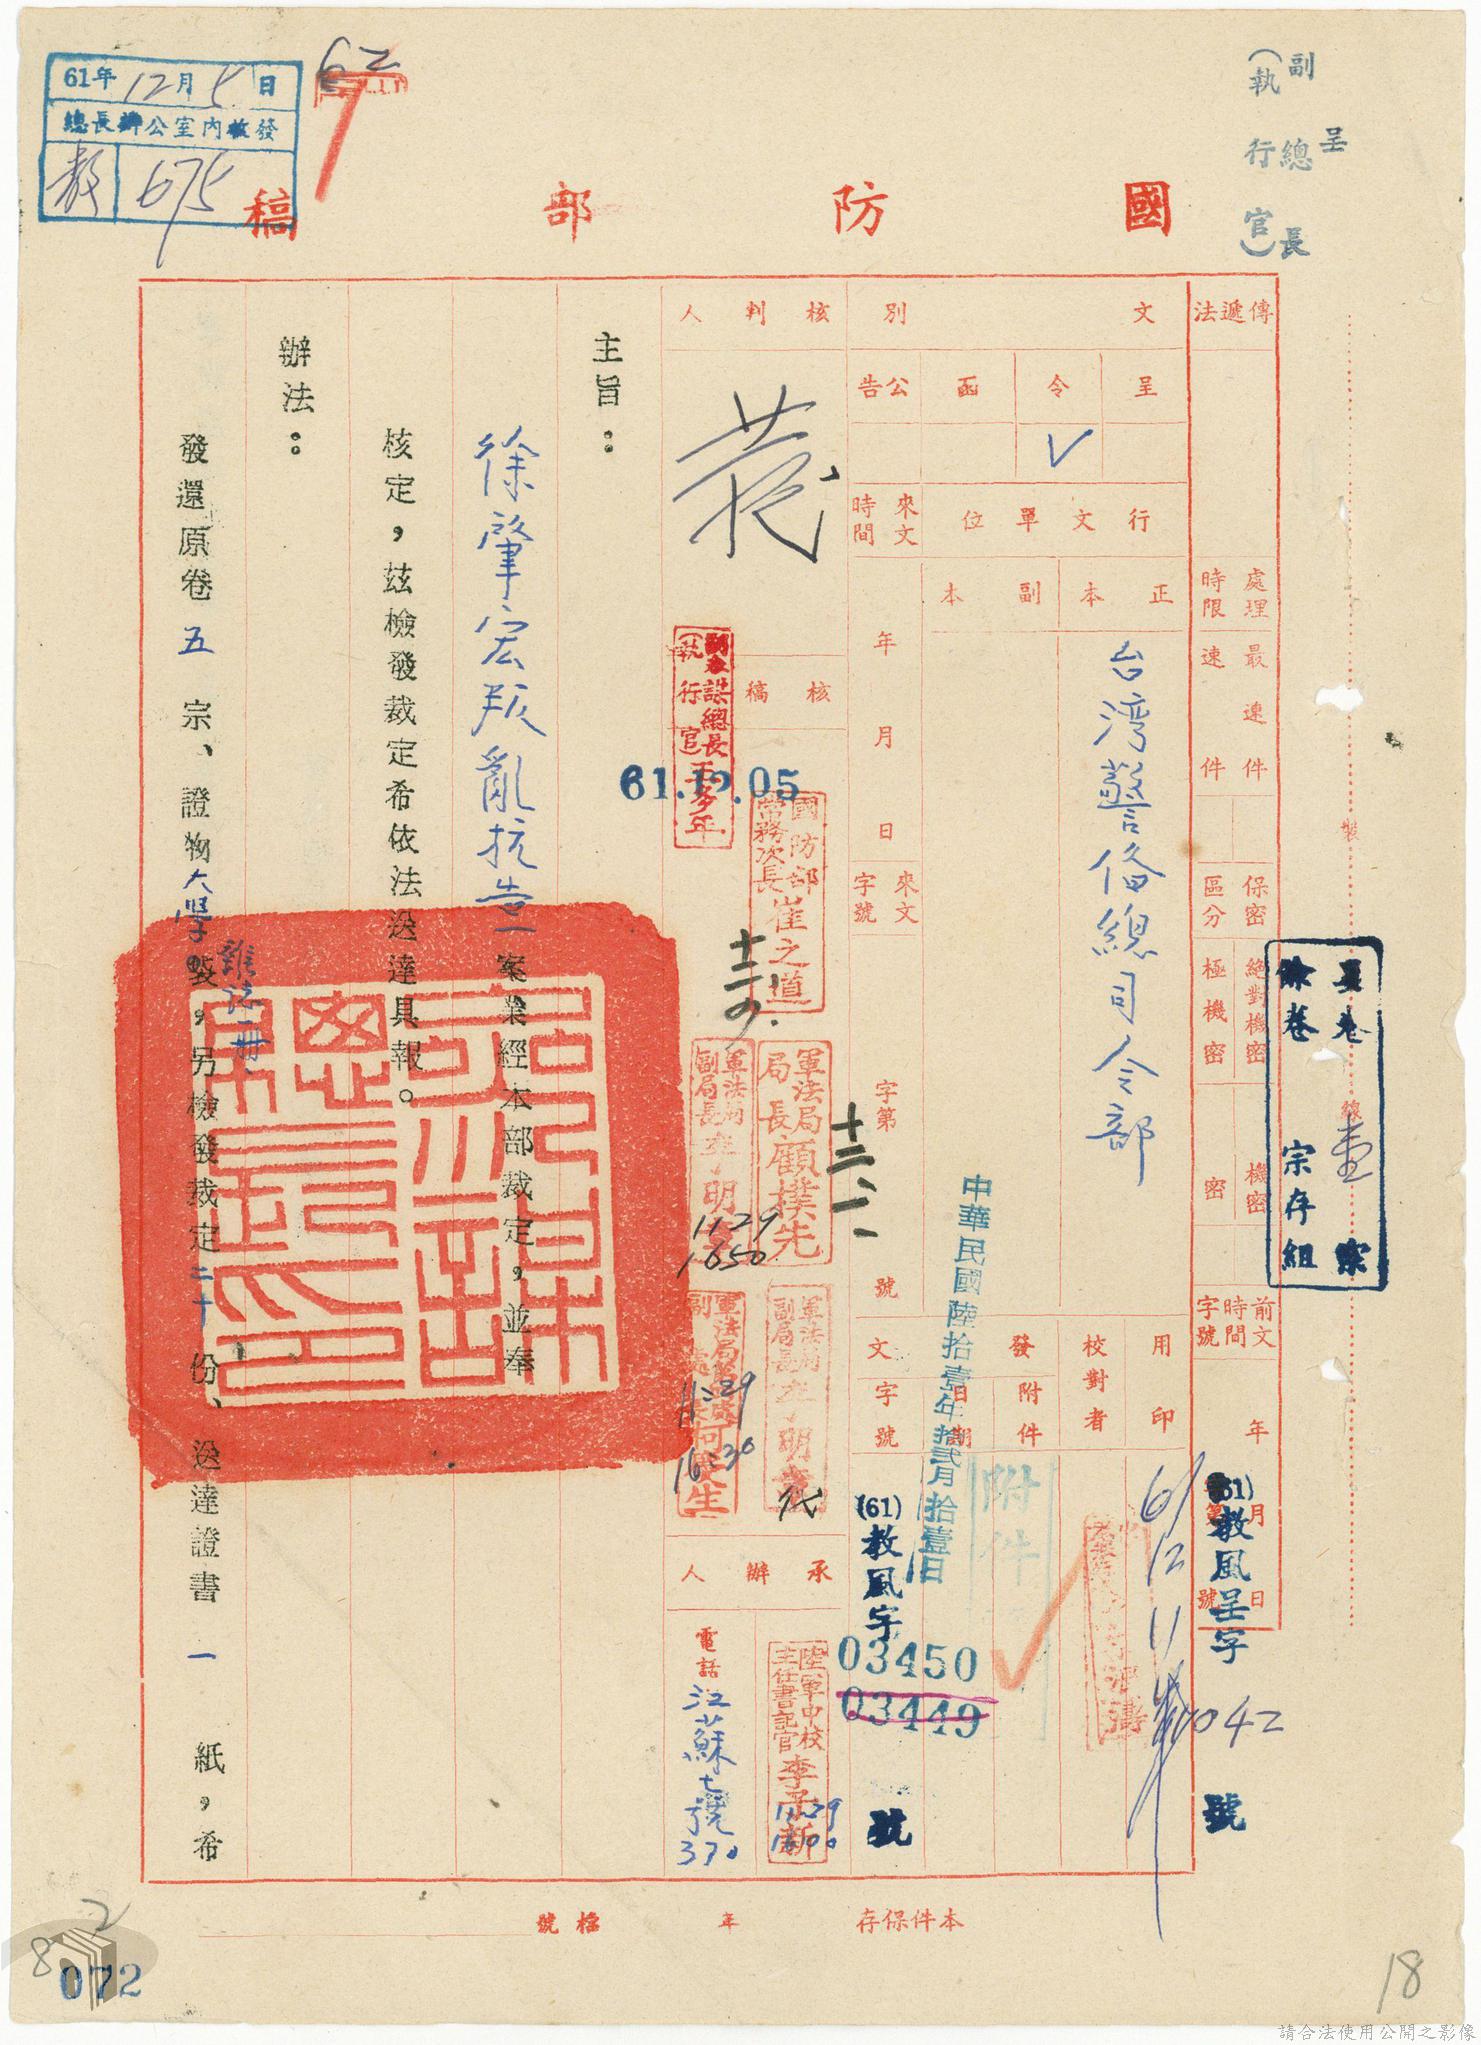 呈
副總長
（執行官）
61年12月5日
總長辦公室內收發
教 675
62
國防部稿
傳遞法
處理時限
最速件
速件
保密區分
絕對機密
極機密
機密
密
前文時間字號
年月日
(61)教風呈字
042
號
文別
呈
令
函
公告
V
行文單位
正本
副本
台灣警俻總司令部
來文時間
年月日
來文字號
字第
號
用印
61 12 11
校對者
發
附件
日期
附件
中華民國陸拾壹年拾貳月拾壹日
文字號
(61)教風字
03450
03449
號
核判人
核稿
副參謀總長
（執行官）
61.12.05
國防部常務次長崔之道
軍法局局長顧樸先
十二、一
軍法局副局長
1129
1650
軍法局副局長
代
11:29
16:30
承辦人
陸軍中校主任書記官李子新
1129
1600
電話
江蘇七號
330
主旨：
徐肇宏叛亂抗告一案業經本部裁定，並奉
核定，茲檢發裁定希依法送達具報。
辦法：
發還原卷五宗、證物大學雜誌一冊，另檢發裁定二十份、送達證書一紙，希
裝
線
卷壹宗
餘卷宗存組
本件保存
年
檔號
2
8
072
18
請合法使用公開之影像